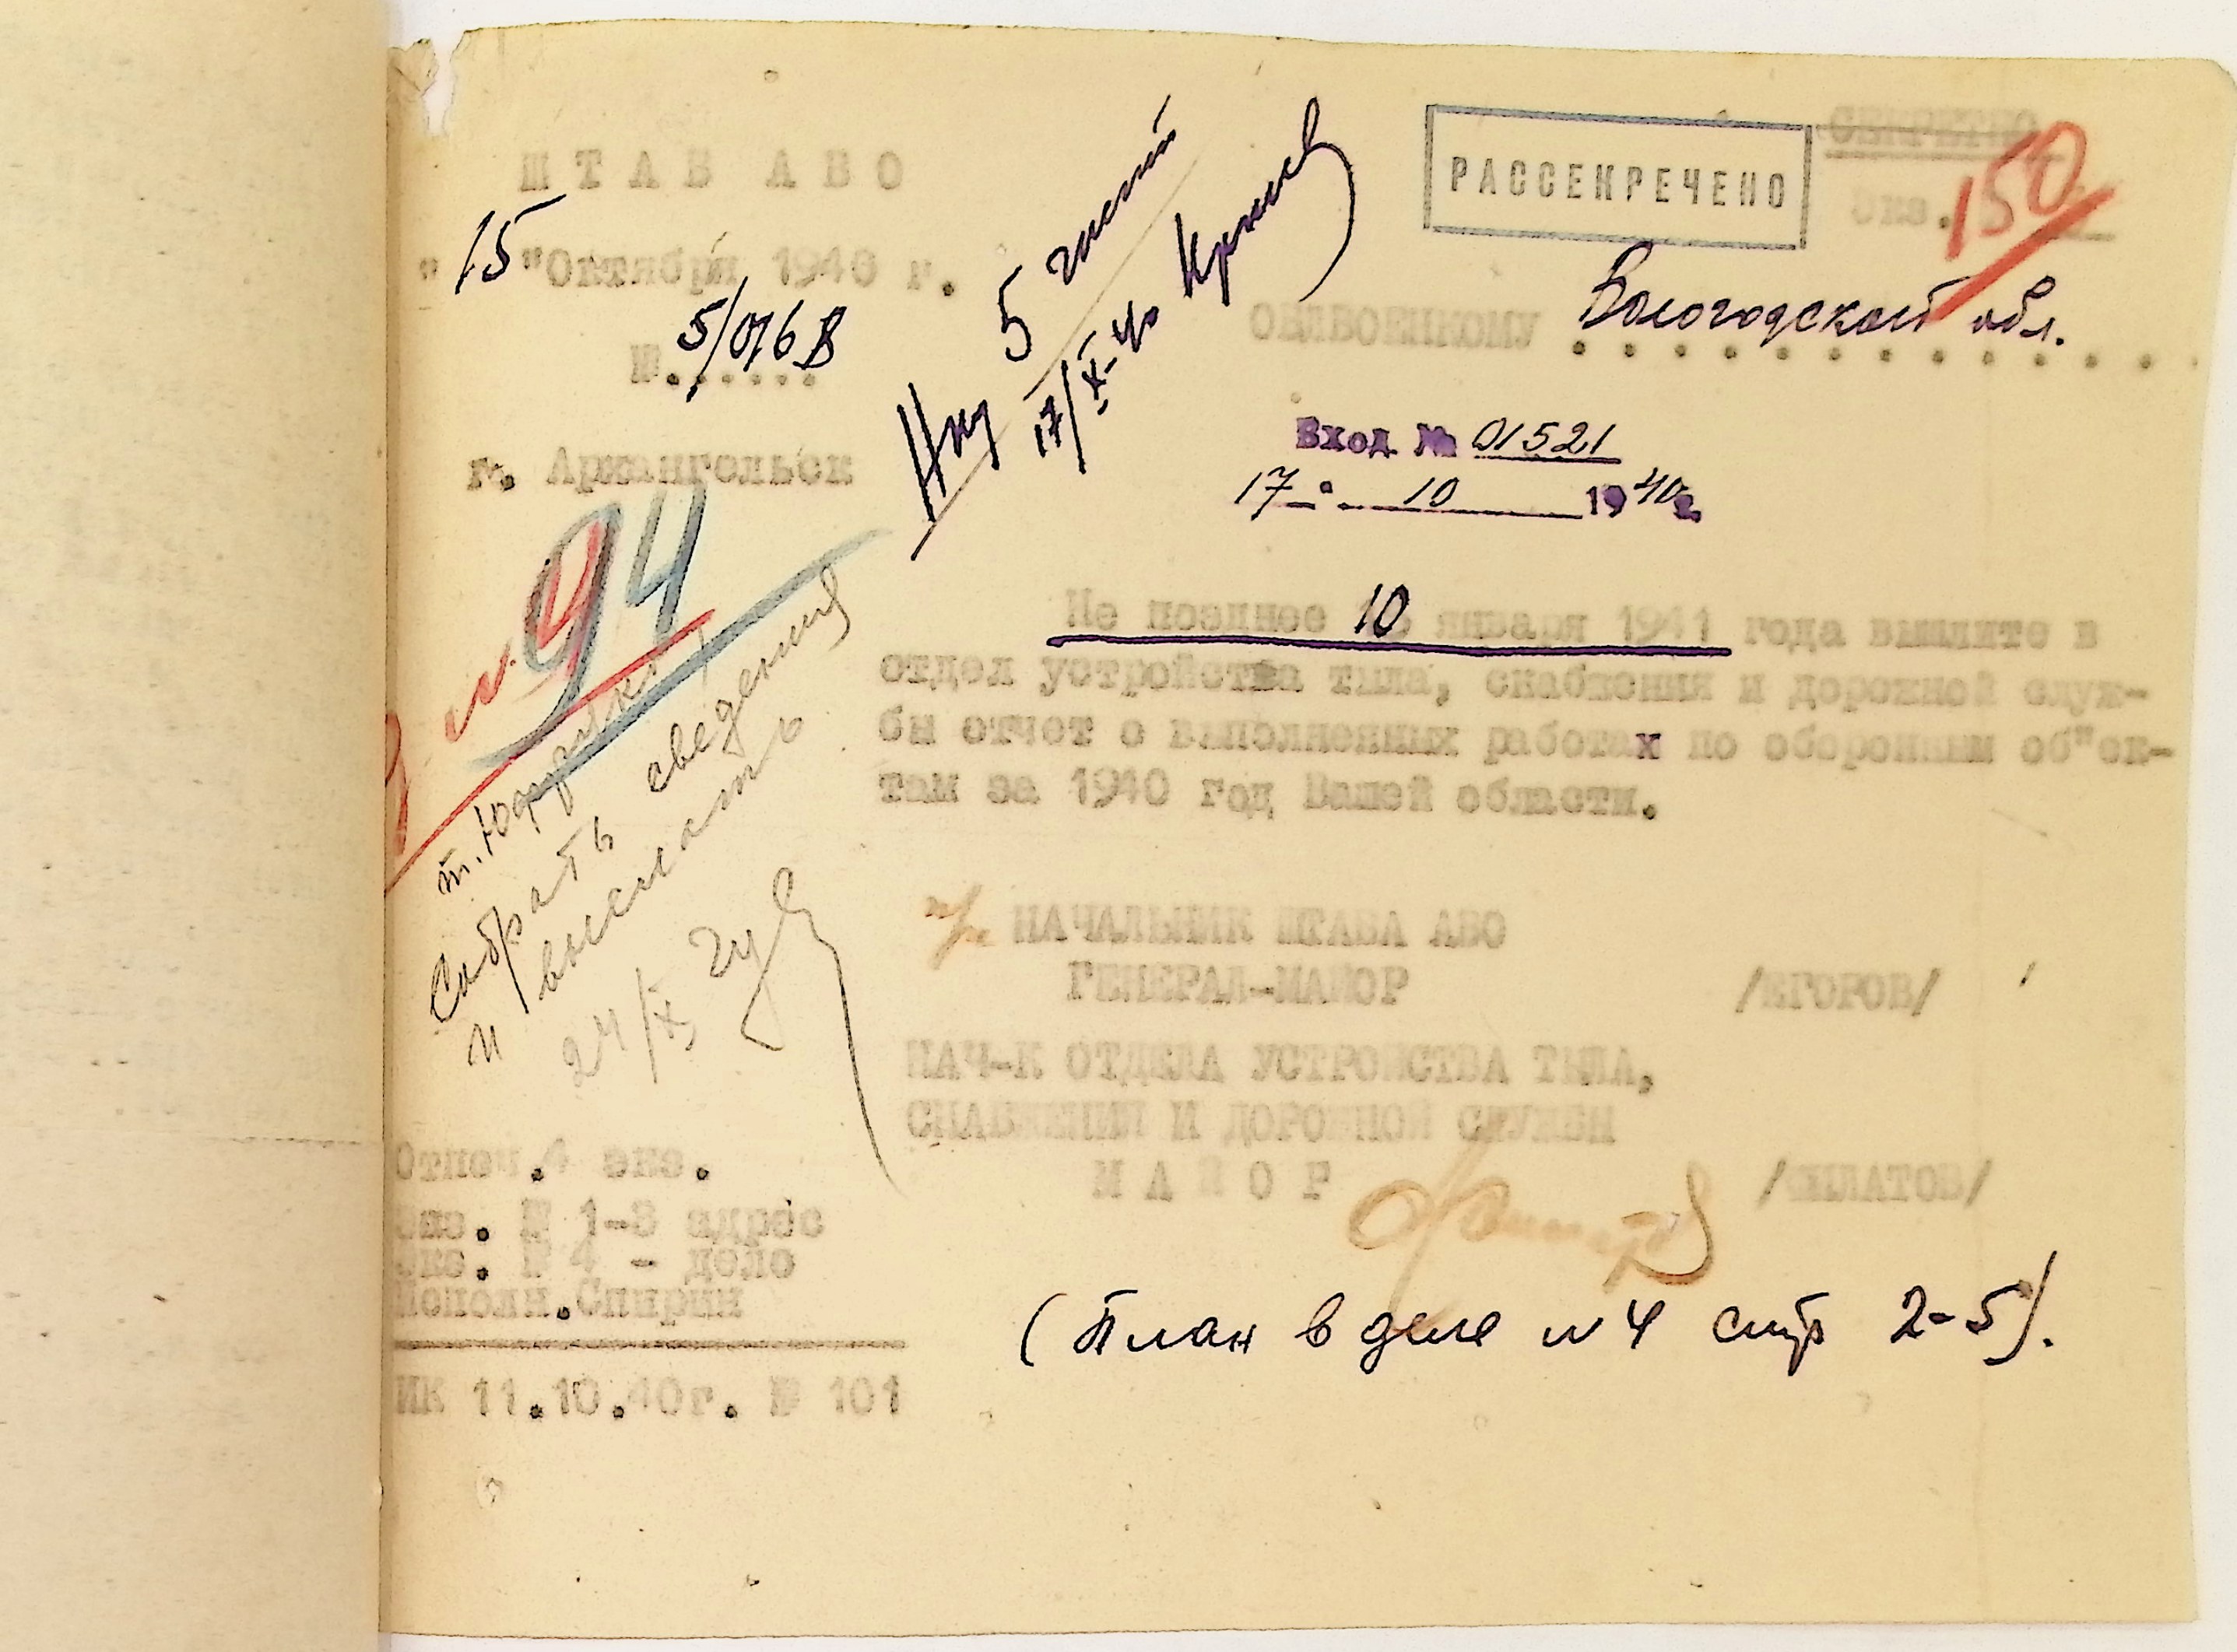 СЕКРЕТНО
РАССЕКРЕЧЕНО
Экз.
150
ШТАБ АВО
"15" Октября 1940 г.
№ 5/016В
г. Архангельск
5
17/X-40
ОБЛВОЕНКОМУ Вологодской обл.
Вход. № 01521
17 10 1940г.
94
Не позднее 10 января 1941 года вышлите в
отдел устройства тыла, снабжения и дорожной служ-
бы отчет о выполненных работах по оборонным об"ек-
там за 1940 год Вашей области.
т.
Собрать сведения
и выслать
24/X
НАЧАЛЬНИК ШТАБА АВО
ГЕНЕРАЛ-МАЙОР /ЕГОРОВ/
НАЧ-К ОТДЕЛА УСТРОЙСТВА ТЫЛА,
СНАБЖЕНИЯ И ДОРОЖНОЙ СЛУЖБЫ
МАЙОР /ФИЛАТОВ/
Отпеч.4 экз.
Экз. № 1-3 адрес
Экз. № 4 - дело
Исполн.Спирин
ИК 11.10.40г. № 101
(План в деле №4 стр 2-5).